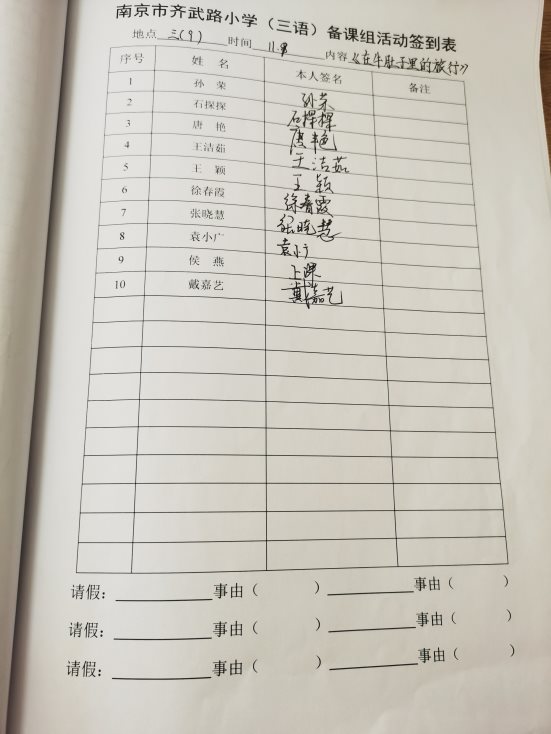 南京市齐武路小学（三语）备课组活动签到表
地点 三(9) 时间 11.8 内容《在牛肚子里的旅行》
序号 姓 名 本人签名 备注
1 孙 荣 孙荣
2 石探探 石探探
3 唐 艳 唐艳
4 王洁茹 王洁茹
5 王 颖 王颖
6 徐春霞 徐春霞
7 张晓慧 张晓慧
8 袁小广 袁小广
9 侯 燕 上课
10 戴嘉艺 戴嘉艺
请假： 事由（ ） 事由（ ）
请假： 事由（ ） 事由（ ）
请假： 事由（ ） 事由（ ）